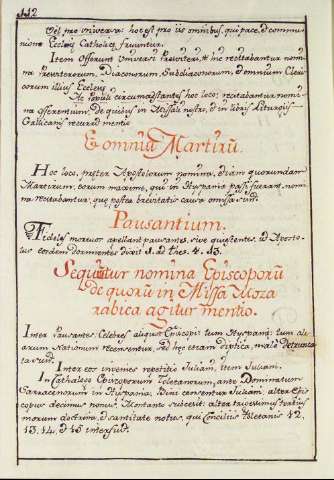 112
Vel pro universa: hoc est pro iis omnibus, qui pace, et commu-
nione Ecclesiæ Catholicæ fruuntur.
Item Offerunt Universi Presbyteri, et hic recitabantur nomi-
na Presbyterorum, Diaconorum, Subdiaconorum, et omnium Cleri-
corum illius Ecclesiæ
Et Populi circumstantis hoc loco; recitabantur nomi-
na offerentium, de quibus in Missali nostro, et in libris Liturgiis
Gallicanis recurrit mentio
Et omniũ Martirũ.
Hoc loco, præter Apostolorum nomina, etiam quorundam
Martirum, eorum maxime, qui in Hyspania passi fuerant, nomi-
na recitabantur, quæ postea brevitatis causa omissa sunt.
Pausantium.
Fideles mortuos apellant pausantes, sive quiescentes, ut Aposto-
lus eosdem dormientes dixit 1. ad Thes. 4. 13.
Sequũtur nomina Episcoporũ
de quorũ in Missa Moza
rabica agitur mentio.
Inter Pausantes. Celebres aliquot Episcopi tum Hyspaniæ; tum ali-
arum Nationum recensentur, sed hæc etiam diptica, malè detruncta
ta sunt.
Inter eos invenies repetitio Juliani, item Juliani.
In Cathalogo Episcoporum Toletanorum, ante Dominatum
Sarracenorum in Hyspania; Bini censentur Juliani, alter Epi-
copus decimus nonus, Montano successit: alter trigessimus tertius
morum doctrina, et santitate notus, qui Conciliis Toletanis 12.
13. 14. et 15 interfuit.